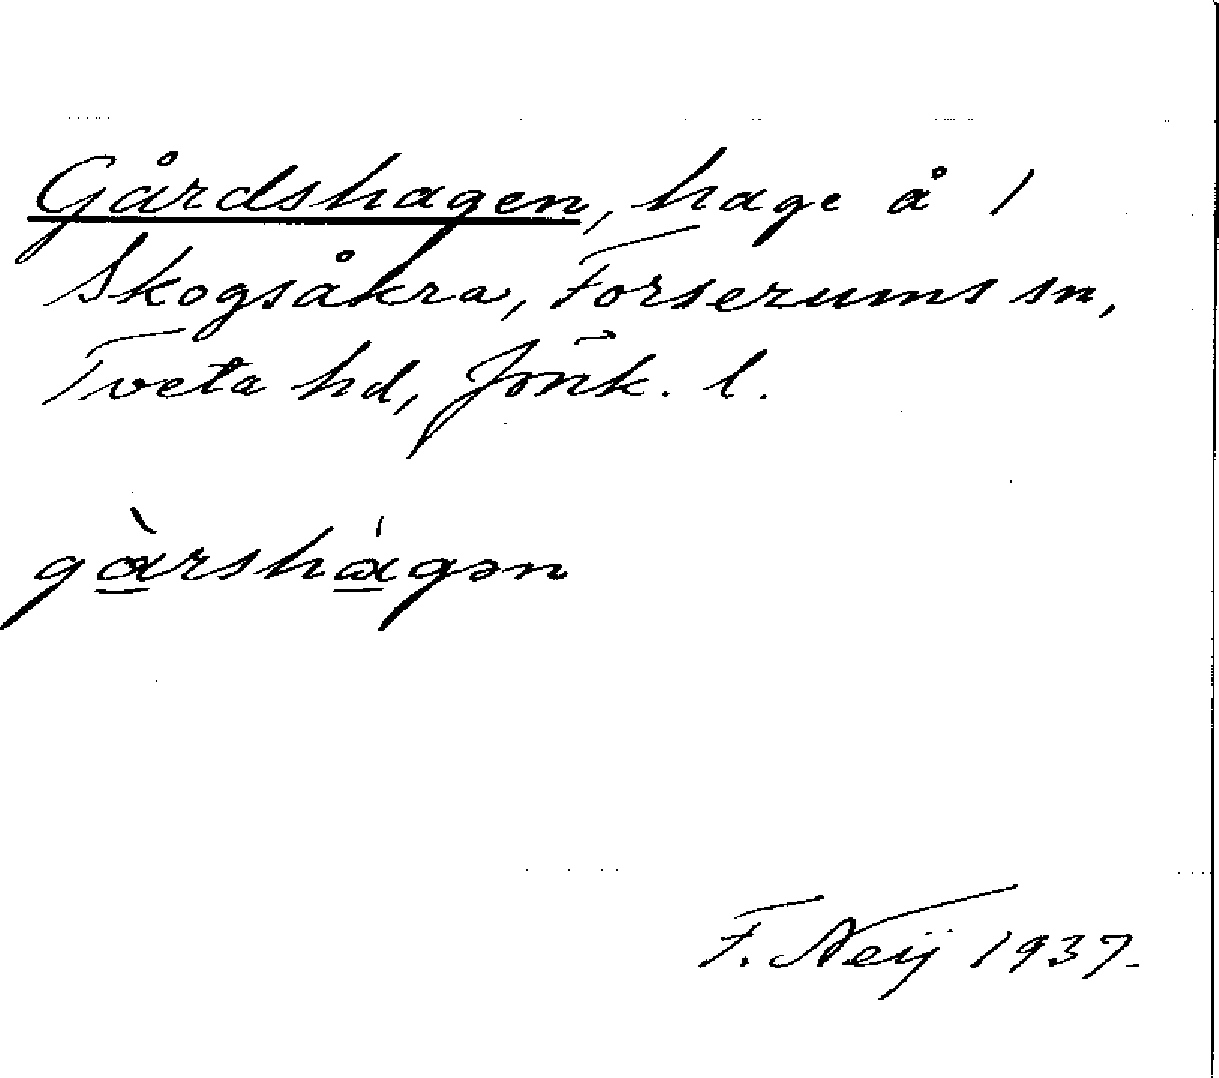 Gårdshagen, hage å 1
Skogsåkra, Forserums sn,
Tveta hd, Jönk. l.
gàrshágən
F. Neij 1937.